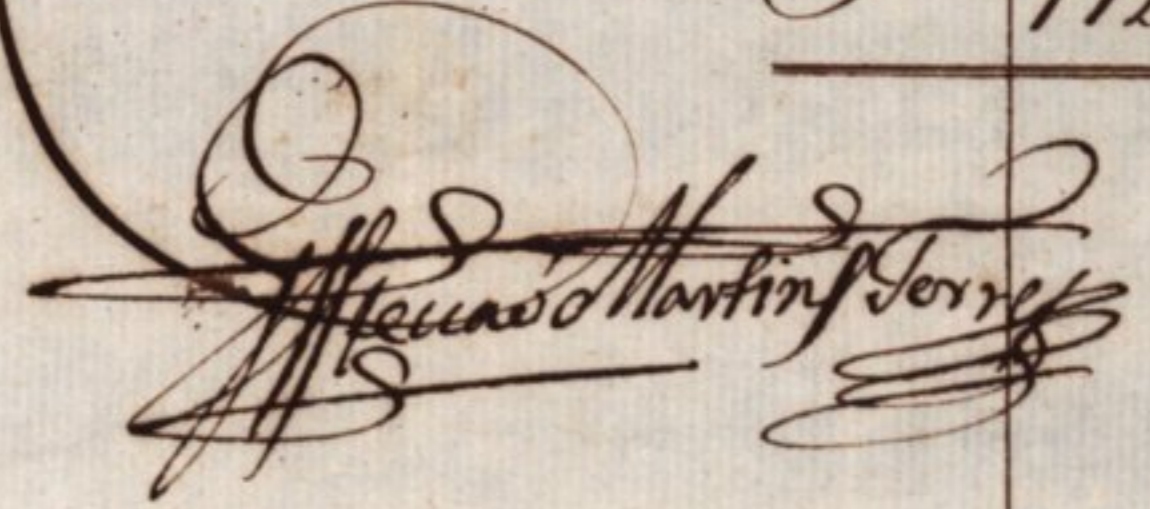 Esteuao Martins Torres